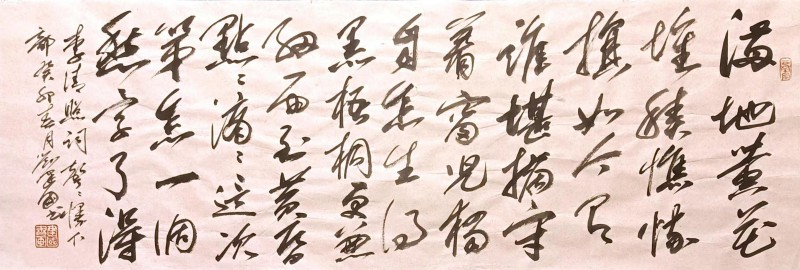 滿地黃花
堆積憔悴
損如今有
誰堪摘守
着窗兒獨
自怎生得
黑梧桐更兼
細雨到黃昏
點〻滴〻這次
第怎一個
愁字了得
李清照詞聲〻慢下
部癸卯春月